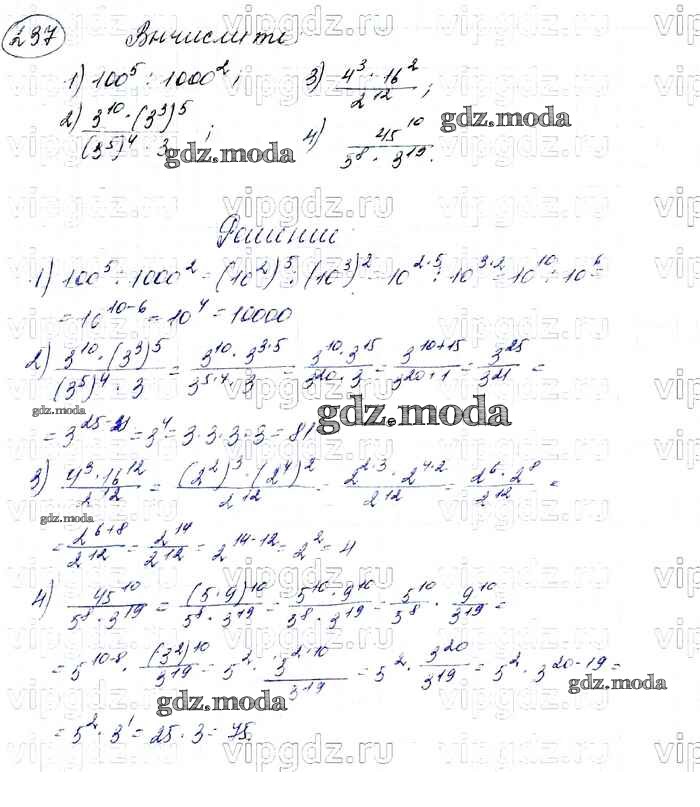 237 Вычислите:
1) 100^5 : 1000^2; 3) (4^3 · 16^2)/(2^12);
2) (3^10 · (3^3)^5)/((3^5)^4 · 3); 4) (45^10)/(5^8 · 3^19).
gdz.moda
gdz.moda
Решение
1) 100^5 : 1000^2 = (10^2)^5 : (10^3)^2 = 10^(2·5) : 10^(3·2) = 10^10 : 10^6 =
= 10^(10-6) = 10^4 = 10000
2) (3^10 · (3^3)^5)/((3^5)^4 · 3) = (3^10 · 3^(3·5))/(3^(5·4) · 3) = (3^10 · 3^15)/(3^20 · 3) = (3^(10+15))/(3^(20+1)) = (3^25)/(3^21) =
gdz.moda
gdz.moda
= 3^(25-21) = 3^4 = 3·3·3·3 = 81
3) (4^3 · 16^12)/(2^12) = ((2^2)^3 · (2^4)^2)/(2^12) = (2^(2·3) · 2^(4·2))/(2^12) = (2^6 · 2^8)/(2^12) =
gdz.moda
= (2^(6+8))/(2^12) = (2^14)/(2^12) = 2^(14-12) = 2^2 = 4
4) (45^10)/(5^8 · 3^19) = ((5·9)^10)/(5^8 · 3^19) = (5^10 · 9^10)/(5^8 · 3^19) = (5^10)/(5^8) · (9^10)/(3^19) =
= 5^(10-8) · ((3^2)^10)/(3^19) = 5^2 · (3^(2·10))/(3^19) = 5^2 · (3^20)/(3^19) = 5^2 · 3^(20-19) =
gdz.moda
gdz.moda
= 5^2 · 3^1 = 25 · 3 = 75.
vipgdz.ru